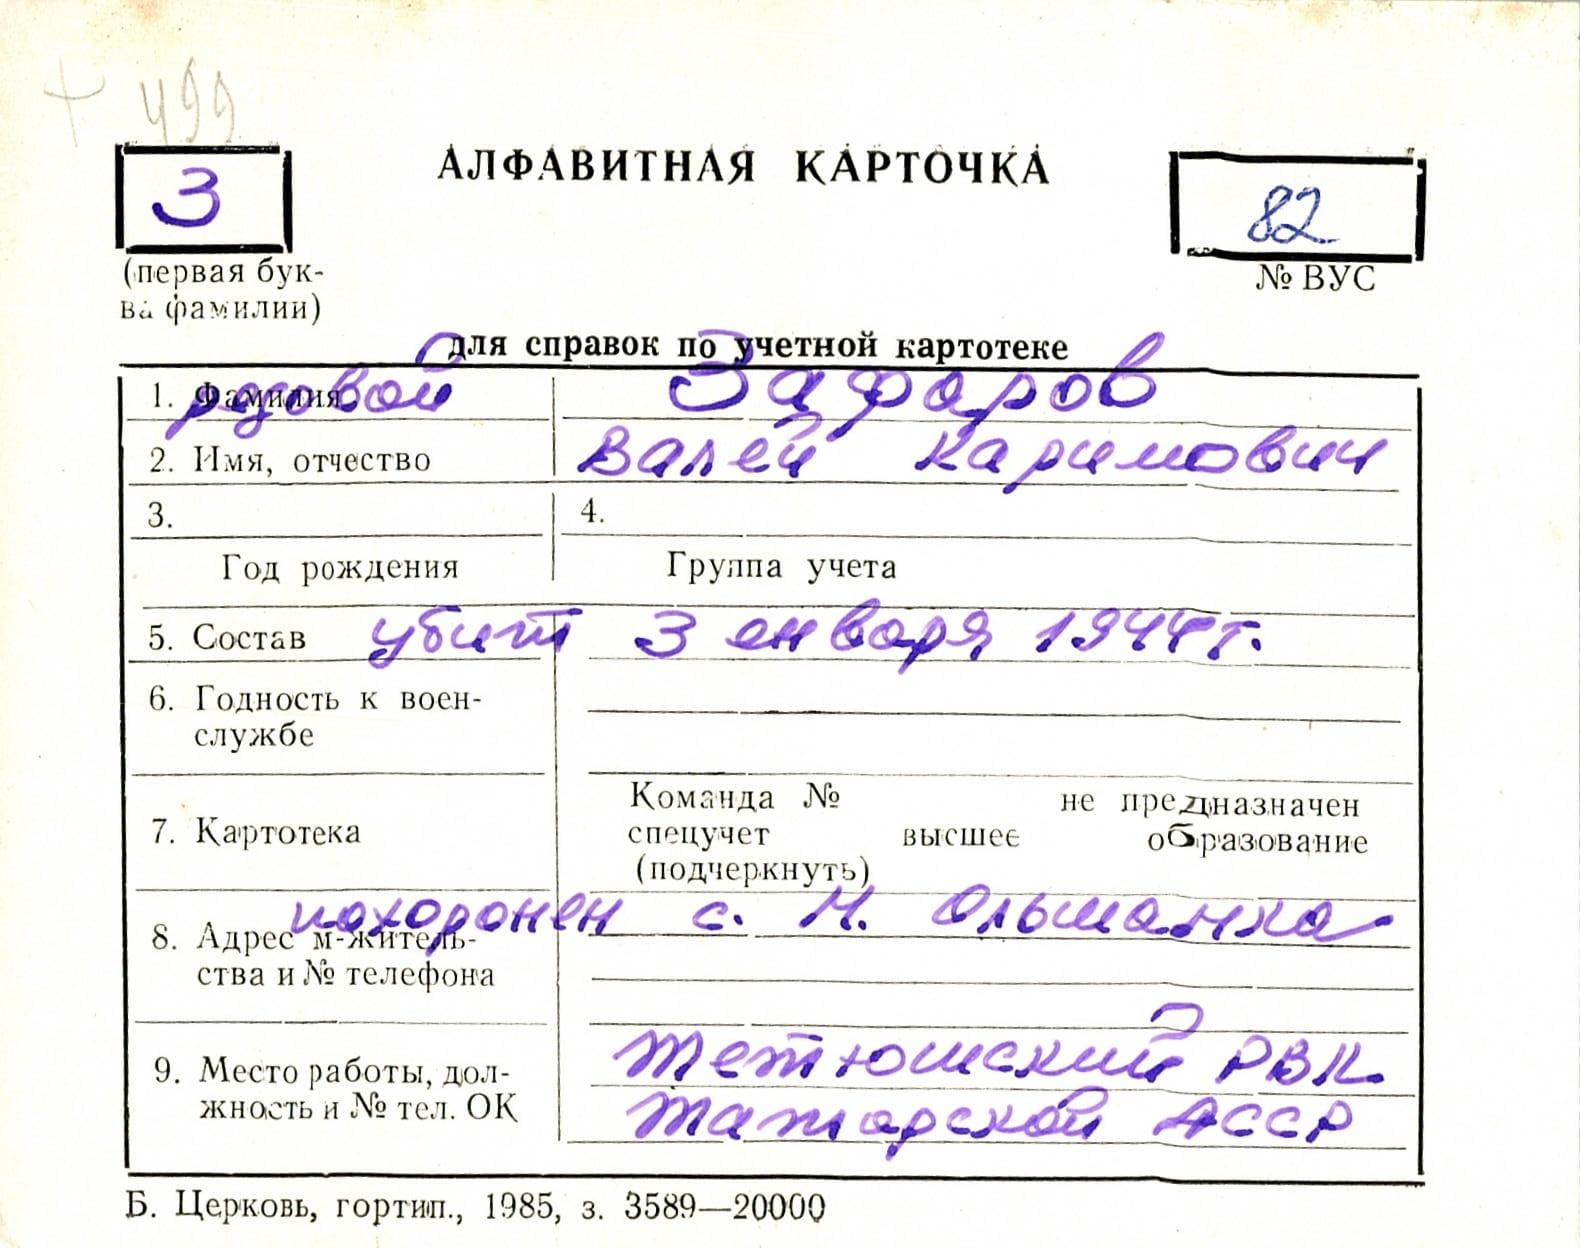 + 499
АЛФАВИТНАЯ КАРТОЧКА
З
82
(первая бук-
ва фамилии)
№ ВУС
для справок по учетной картотеке
1. Фамилия рядовой Зафаров
2. Имя, отчество Валей Каримович
3. 4.
Год рождения Группа учета
5. Состав убит 3 января 1944 г.
6. Годность к воен-
службе
Команда № не предназначен
7. Картотека спецучет высшее образование
(подчеркнуть)
похоронен с. М. Ольшанка
8. Адрес м-житель-
ства и № телефона
Тетюшский РВК
9. Место работы, дол-
жность и № тел. ОК Татарской АССР
Б. Церковь, гортип., 1985, з. 3589—20000